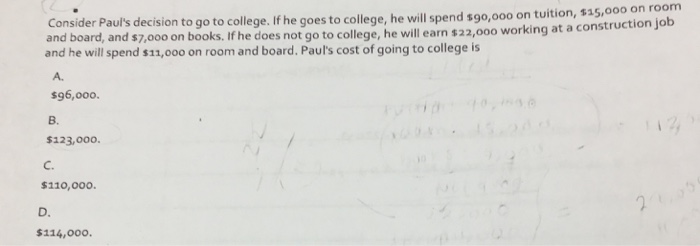 Consider Paul's decision to go to college. If he goes to college, he will spend $90,000 on tuition, $15,000 on room
and board, and $7,000 on books. If he does not go to college, he will earn $22,000 working at a construction job
and he will spend $11,000 on room and board. Paul's cost of going to college is
A.
$96,000.
B.
$123,000.
C.
$110,000.
D.
$114,000.